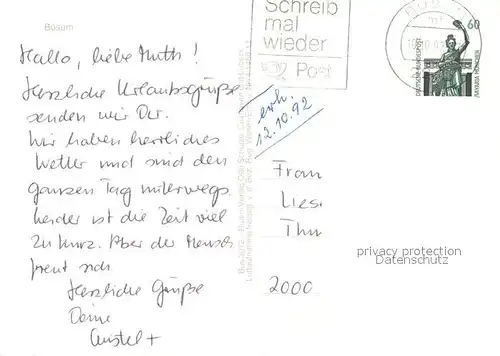 Büsum
Hallo, liebe Mutti!
Herzliche Urlaubsgrüße
senden wir Dir.
Wir haben herrliches
Wetter und sind den
ganzen Tag unterwegs.
Leider ist die Zeit viel
zu kurz. Aber der Mensch
freut sich.
Herzliche Grüße
Deine
Christel +
Schreib
mal
wieder
Post
60
DEUTSCHE BUNDESPOST
BAVARIA MÜNCHEN
erh.
12.10.92
Frau
Liese
2000
privacy protection
Datenschutz